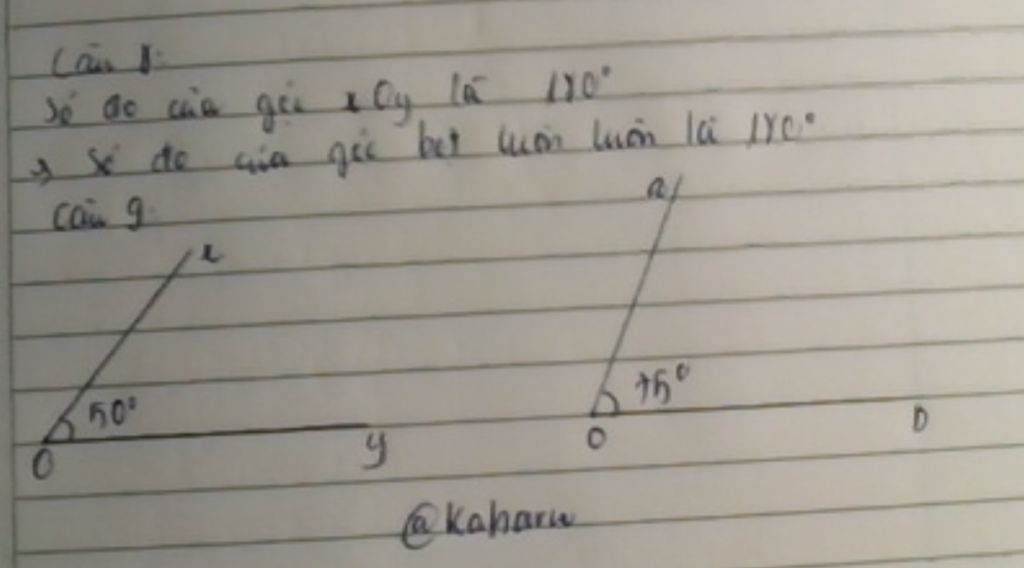 Câu 8:
Số đo của góc xOy là 180°
→ Số đo của góc bẹt luôn luôn là 180°
Câu 9:
x
a
50°
75°
O
y
O
b
@Kaharu